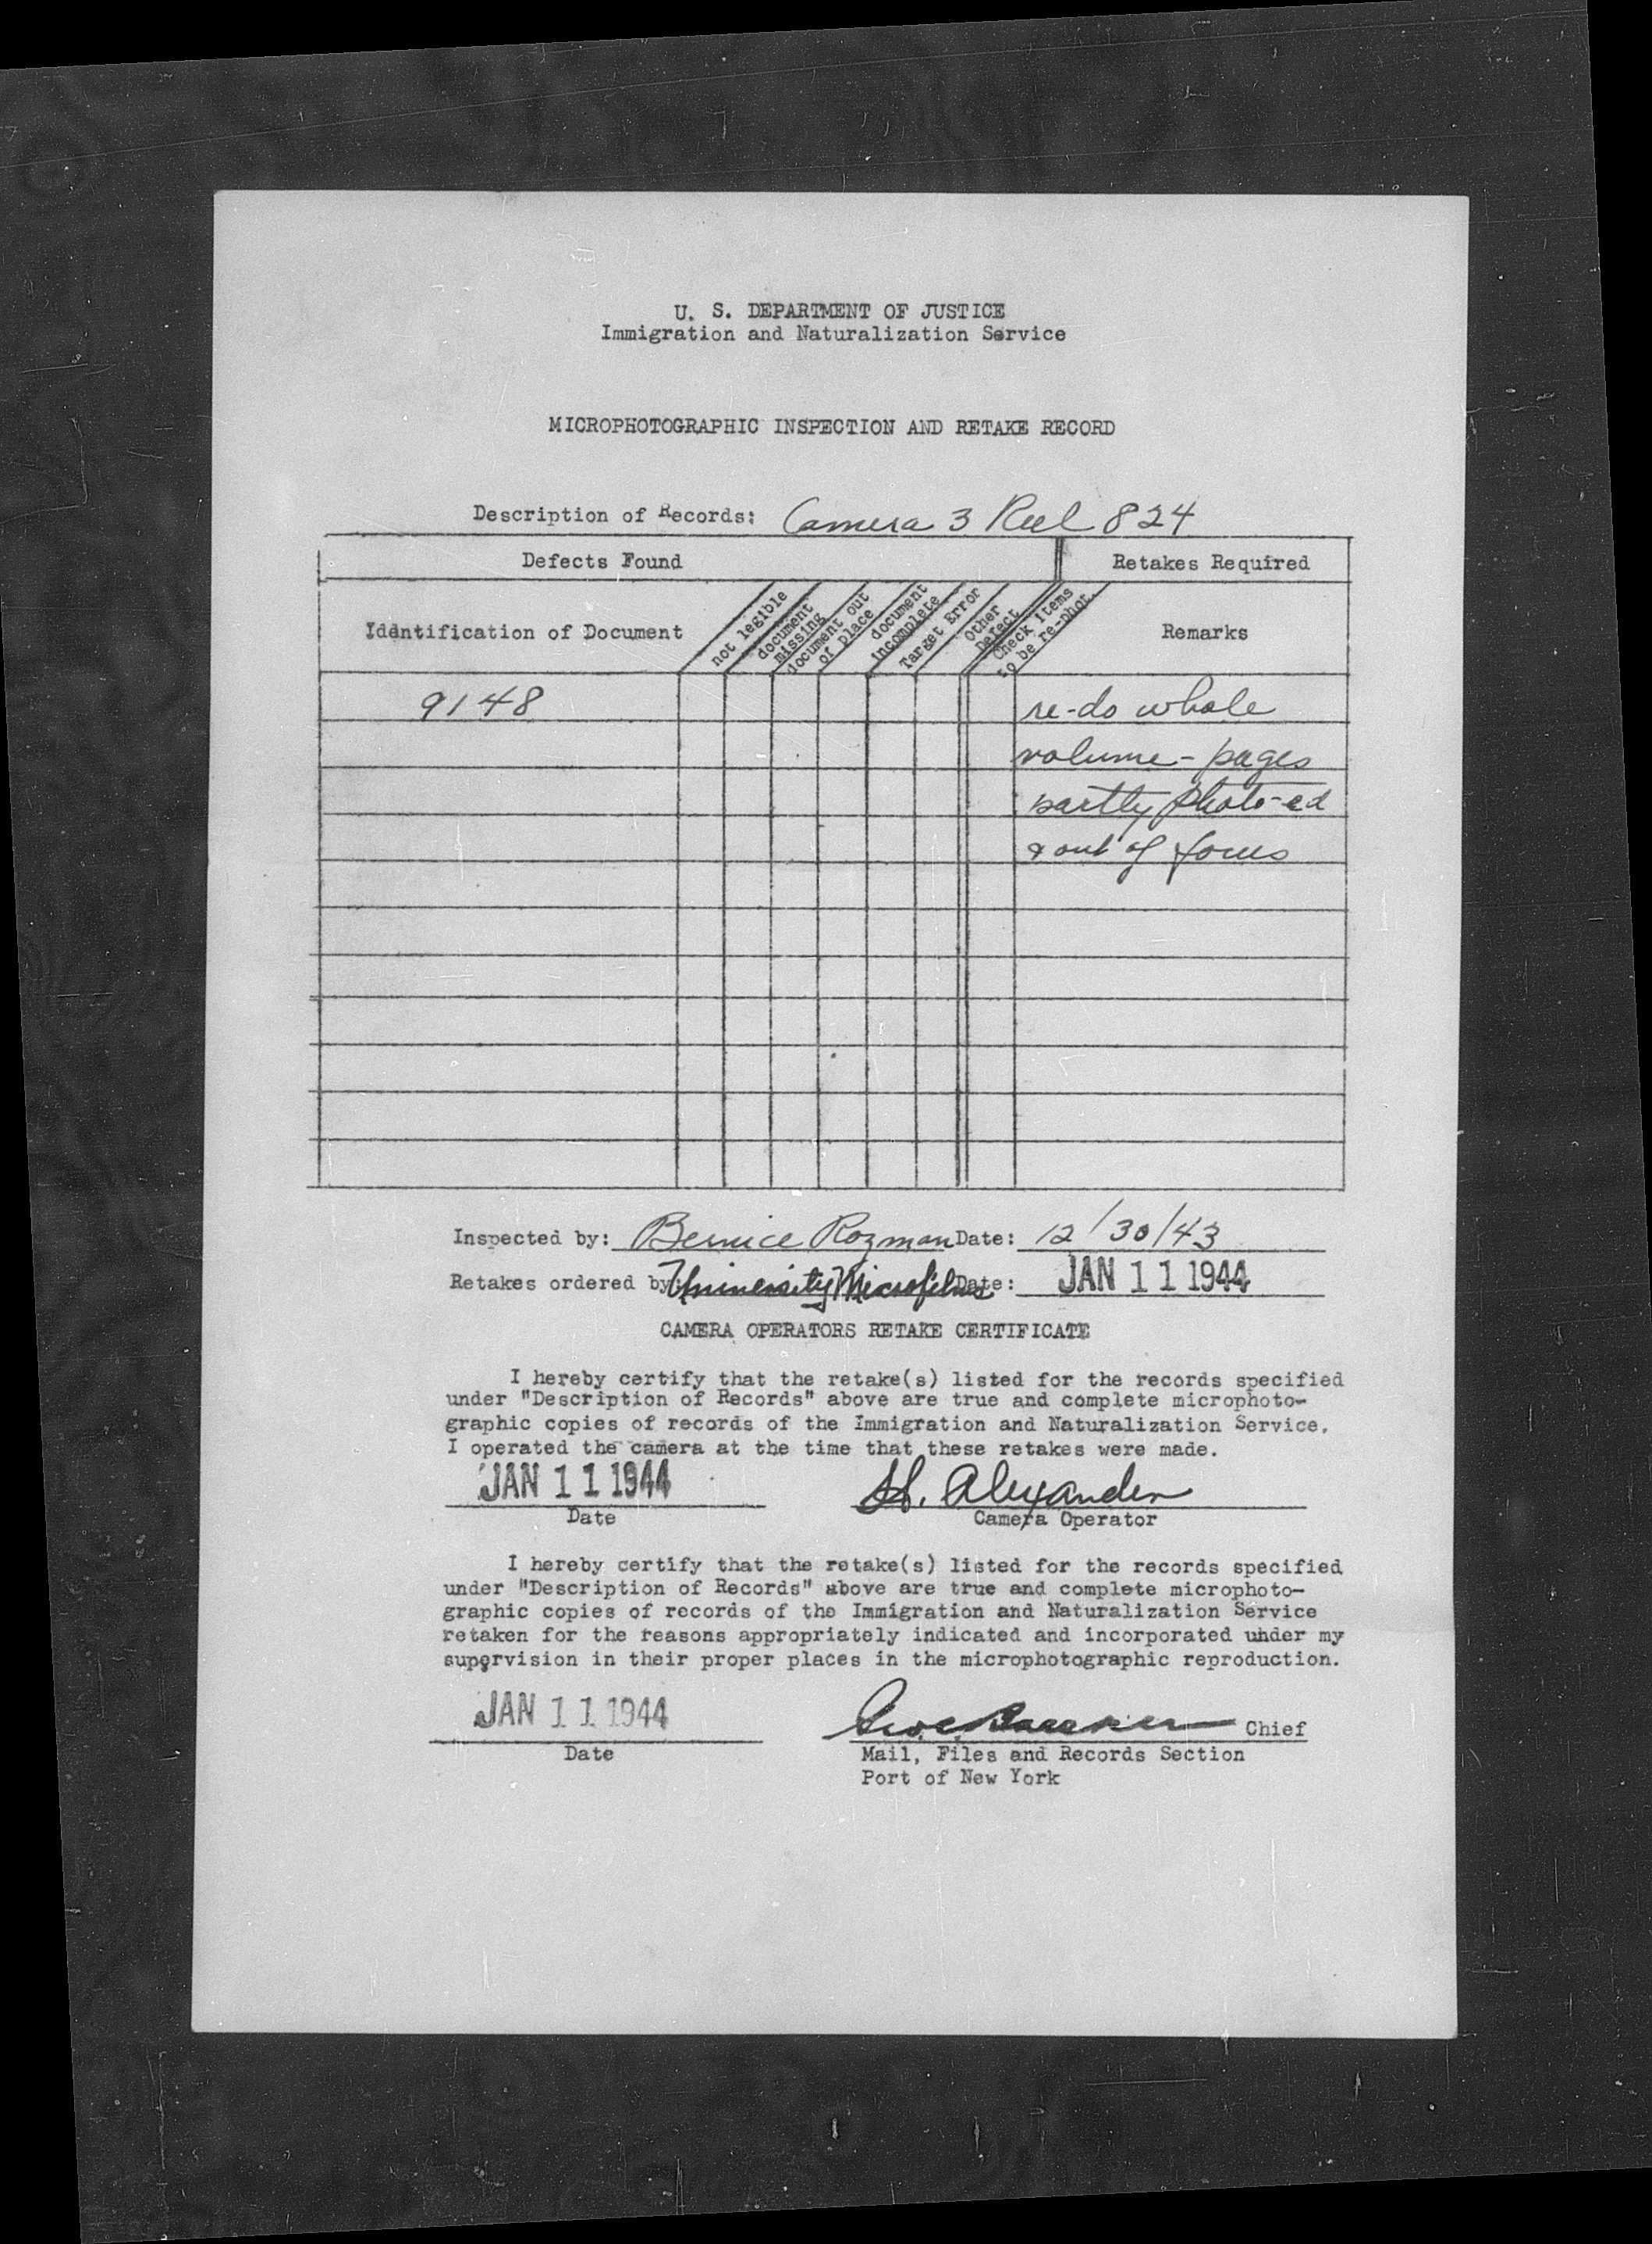 U. S. DEPARTMENT OF JUSTICE
Immigration and Naturalization Service
MICROPHOTOGRAPHIC INSPECTION AND RETAKE RECORD
Description of Records: Camera 3 Reel 824
Defects Found
Retakes Required
Identification of Document
not legible
document missing
document out of place
document incomplete
Target Error
Other Defect
Check items to be re-phot.
Remarks
9148 re-do whole
volume - pages
partly photo-ed
& out of focus
Inspected by: Bernice Rozman Date: 12/30/43
Retakes ordered by: University Microfilms Date: JAN 11 1944
CAMERA OPERATORS RETAKE CERTIFICATE
I hereby certify that the retake(s) listed for the records specified
under "Description of Records" above are true and complete microphoto-
graphic copies of records of the Immigration and Naturalization Service.
I operated the camera at the time that these retakes were made.
JAN 11 1944 H. Alexander
Date Camera Operator
I hereby certify that the retake(s) listed for the records specified
under "Description of Records" above are true and complete microphoto-
graphic copies of records of the Immigration and Naturalization Service
retaken for the reasons appropriately indicated and incorporated under my
supervision in their proper places in the microphotographic reproduction.
JAN 11 1944 Chief
Date Mail, Files and Records Section
Port of New York